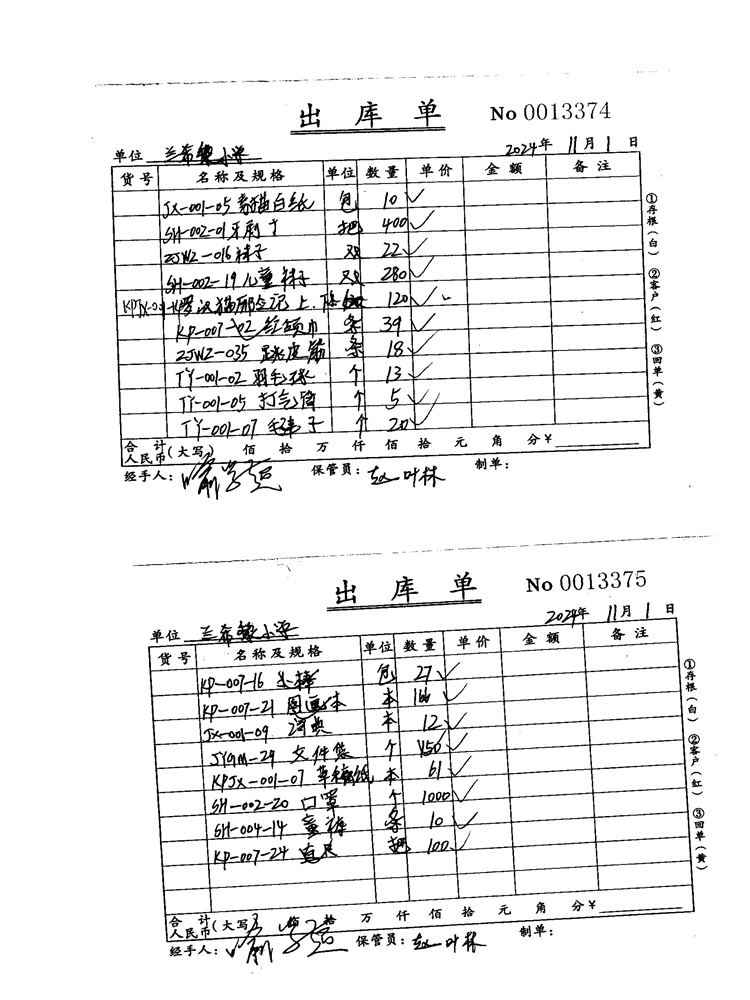 出 库 单 No 0013374
单位 兰希镇小学 2024年 11月 1日
货号 名称及规格 单位 数量 单价 金额 备注
JX-001-05 熊猫白纸 包 10 ✓
SH-002-01 牙刷 把 400 ✓
ZJWZ-016 袜子 双 22 ✓
SH-002-19 儿童袜子 双 280 ✓
上 120 ✓
KP-007-02 红领巾 条 39 ✓
ZJWZ-035 跳皮筋 条 18 ✓
TY-001-02 羽毛球 个 13 ✓
TY-001-05 打气筒 个 5 ✓
TY-001-07 毛毽子 个 20 ✓
合计人民币(大写) 佰 拾 万 仟 佰 拾 元 角 分 ¥
经手人: 保管员: 赵叶林 制单:
①存根(白) ②客户(红) ③回单(黄)
出 库 单 No 0013375
单位 兰希镇小学 2024年 11月 1日
货号 名称及规格 单位 数量 单价 金额 备注
KP-007-16 小棒 包 27 ✓
KP-007-21 图画本 本 166 ✓
JX-001-09 词典 本 12 ✓
JYGM-29 文件袋 个 450 ✓
KPJX-001-07 草稿纸 本 61 ✓
SH-002-20 口罩 个 1000 ✓
SH-004-14 童裤 条 10 ✓
KP-007-24 直尺 把 100 ✓
合计人民币(大写) 佰 拾 万 仟 佰 拾 元 角 分 ¥
经手人: 保管员: 赵叶林 制单:
①存根(白) ②客户(红) ③回单(黄)